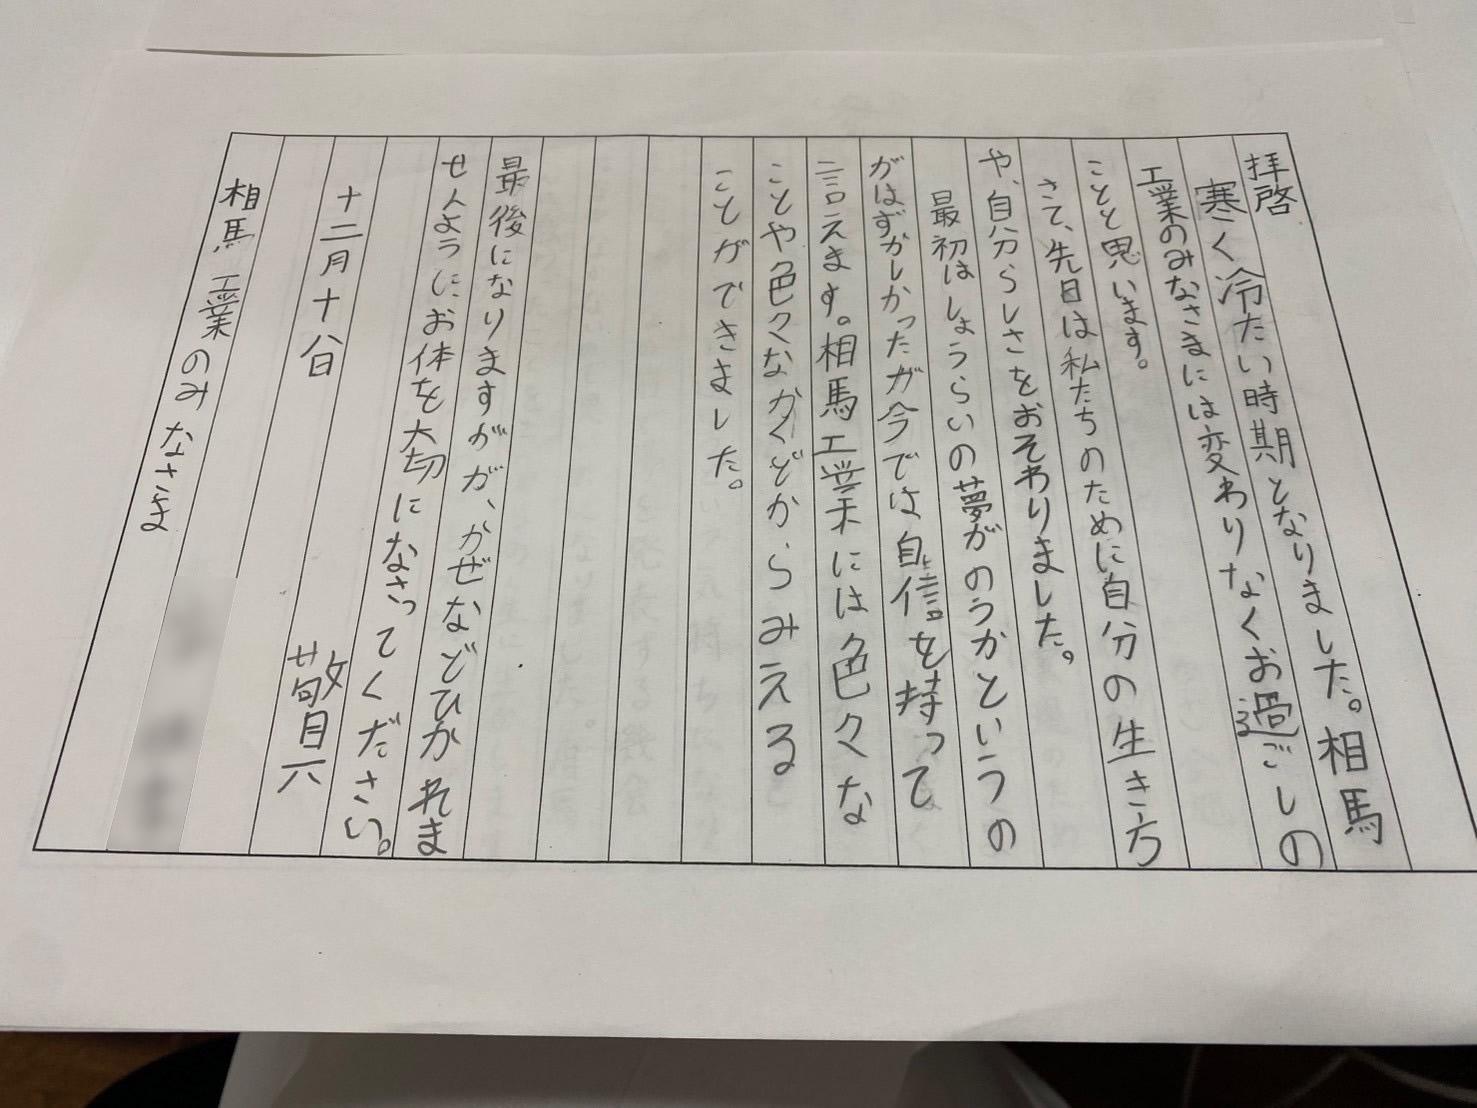 拝啓
寒く冷たい時期となりました。相馬
工業のみなさまには変わりなくお過ごしの
ことと思います。
さて、先日は私たちのために自分の生き方
や、自分らしさをおそわりました。
最初はしょうらいの夢がのうかというの
がはずかしかったが今では自信を持って
言えます。相馬工業には色々な
ことや色々なかくどからみえる
ことができました。
最後になりますがが、かぜなどひかれま
せんようにお体を大切になさってください。
敬具
十二月十八日
相馬工業のみなさま